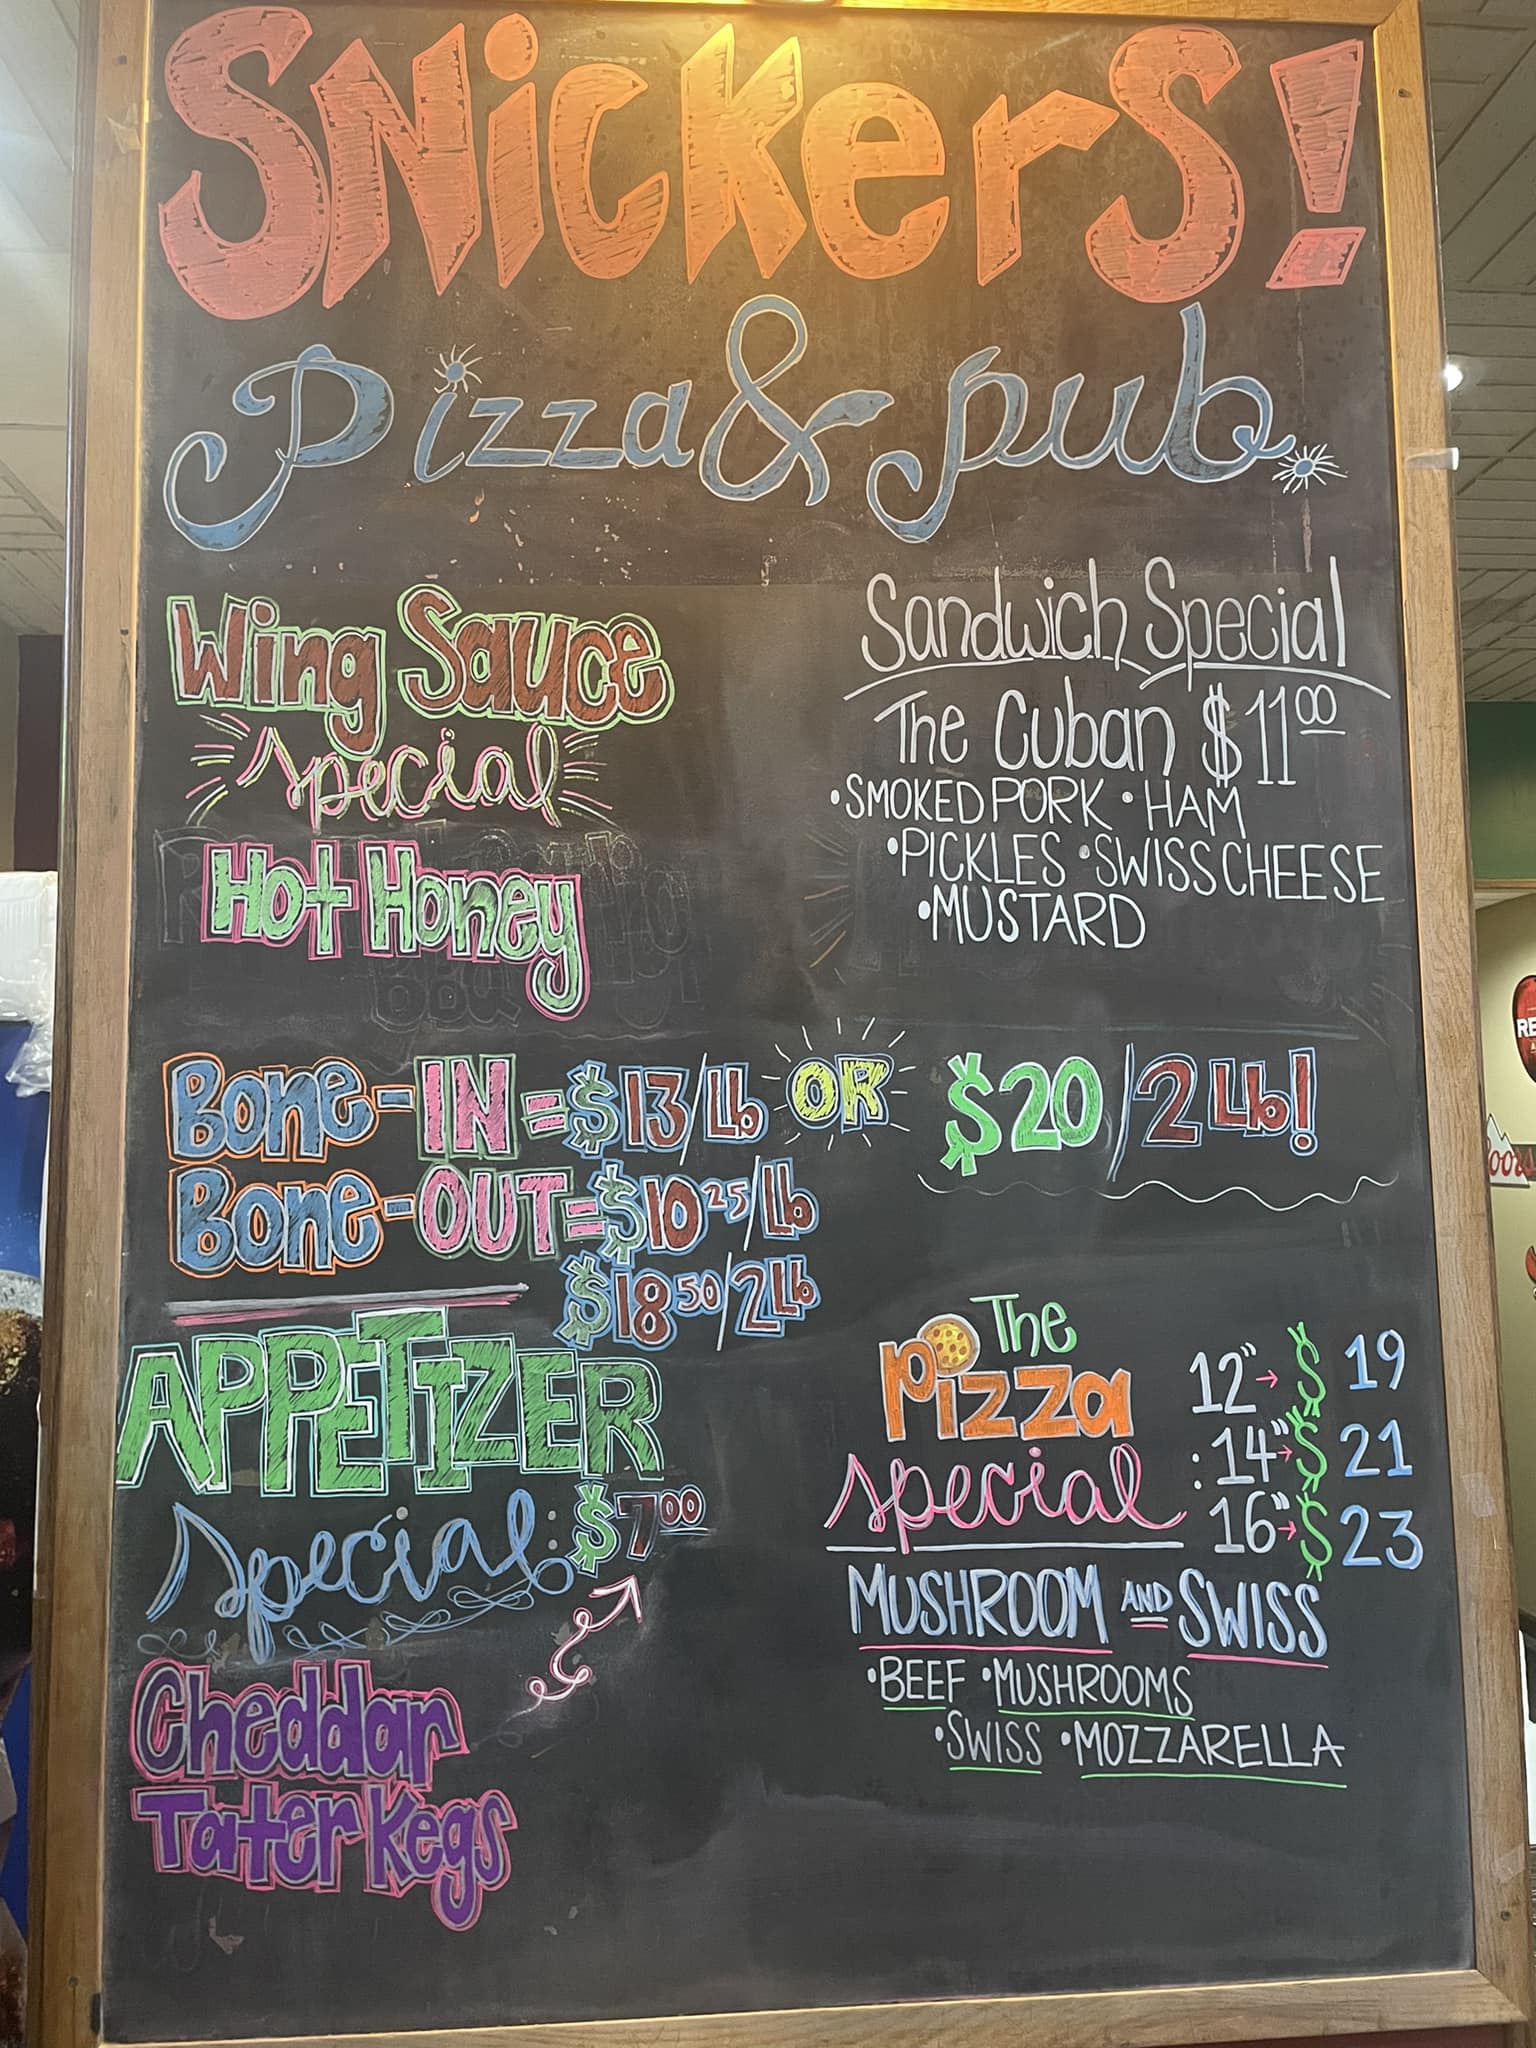 SNickerS!
Pizza & pub.
Wing Sauce
special
Hot Honey
Sandwich Special
The Cuban $11.00
• SMOKED PORK • HAM
• PICKLES • SWISS CHEESE
• MUSTARD
Bone-IN = $13/Lb OR $20/2 Lb!
Bone-OUT = $10.25/Lb
$18.50/2Lb
APPETIZER
special: $7.00
Cheddar
Tater Kegs
The
Pizza
special
12" → $ 19
: 14" → $ 21
16" → $ 23
MUSHROOM AND SWISS
• BEEF • MUSHROOMS
• SWISS • MOZZARELLA